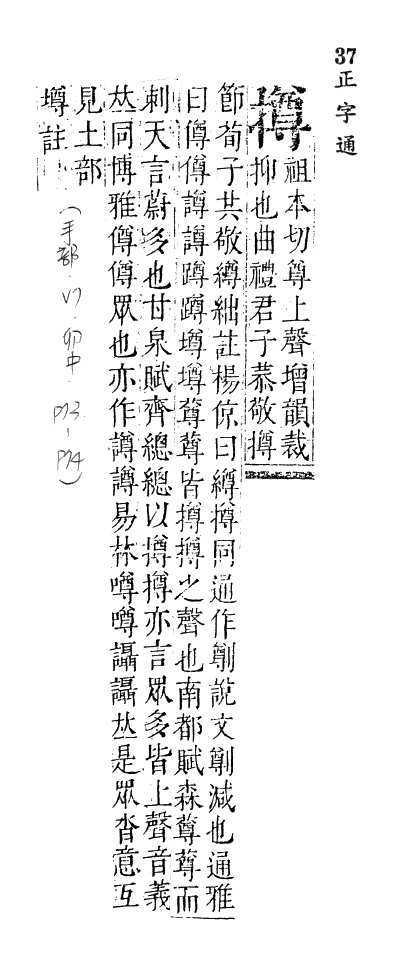 37正字通
撙 祖本切尊上聲增韻裁
抑也曲禮君子恭敬撙
節荀子共敬繜絀註楊倞曰繜撙同通作說文減也通雅
曰僔僔譐譐蹲蹲墫墫䔿䔿皆撙撙之聲也南都賦森䔿䔿而
刺天言蔚多也甘泉賦齊總總以撙撙亦言眾多皆上聲音義
𠀤同博雅僔僔眾也亦作譐譐易林噂噂讘讘𠀤是眾沓意互
見土部
墫註
(手部.V7.卯中.P73-P74)